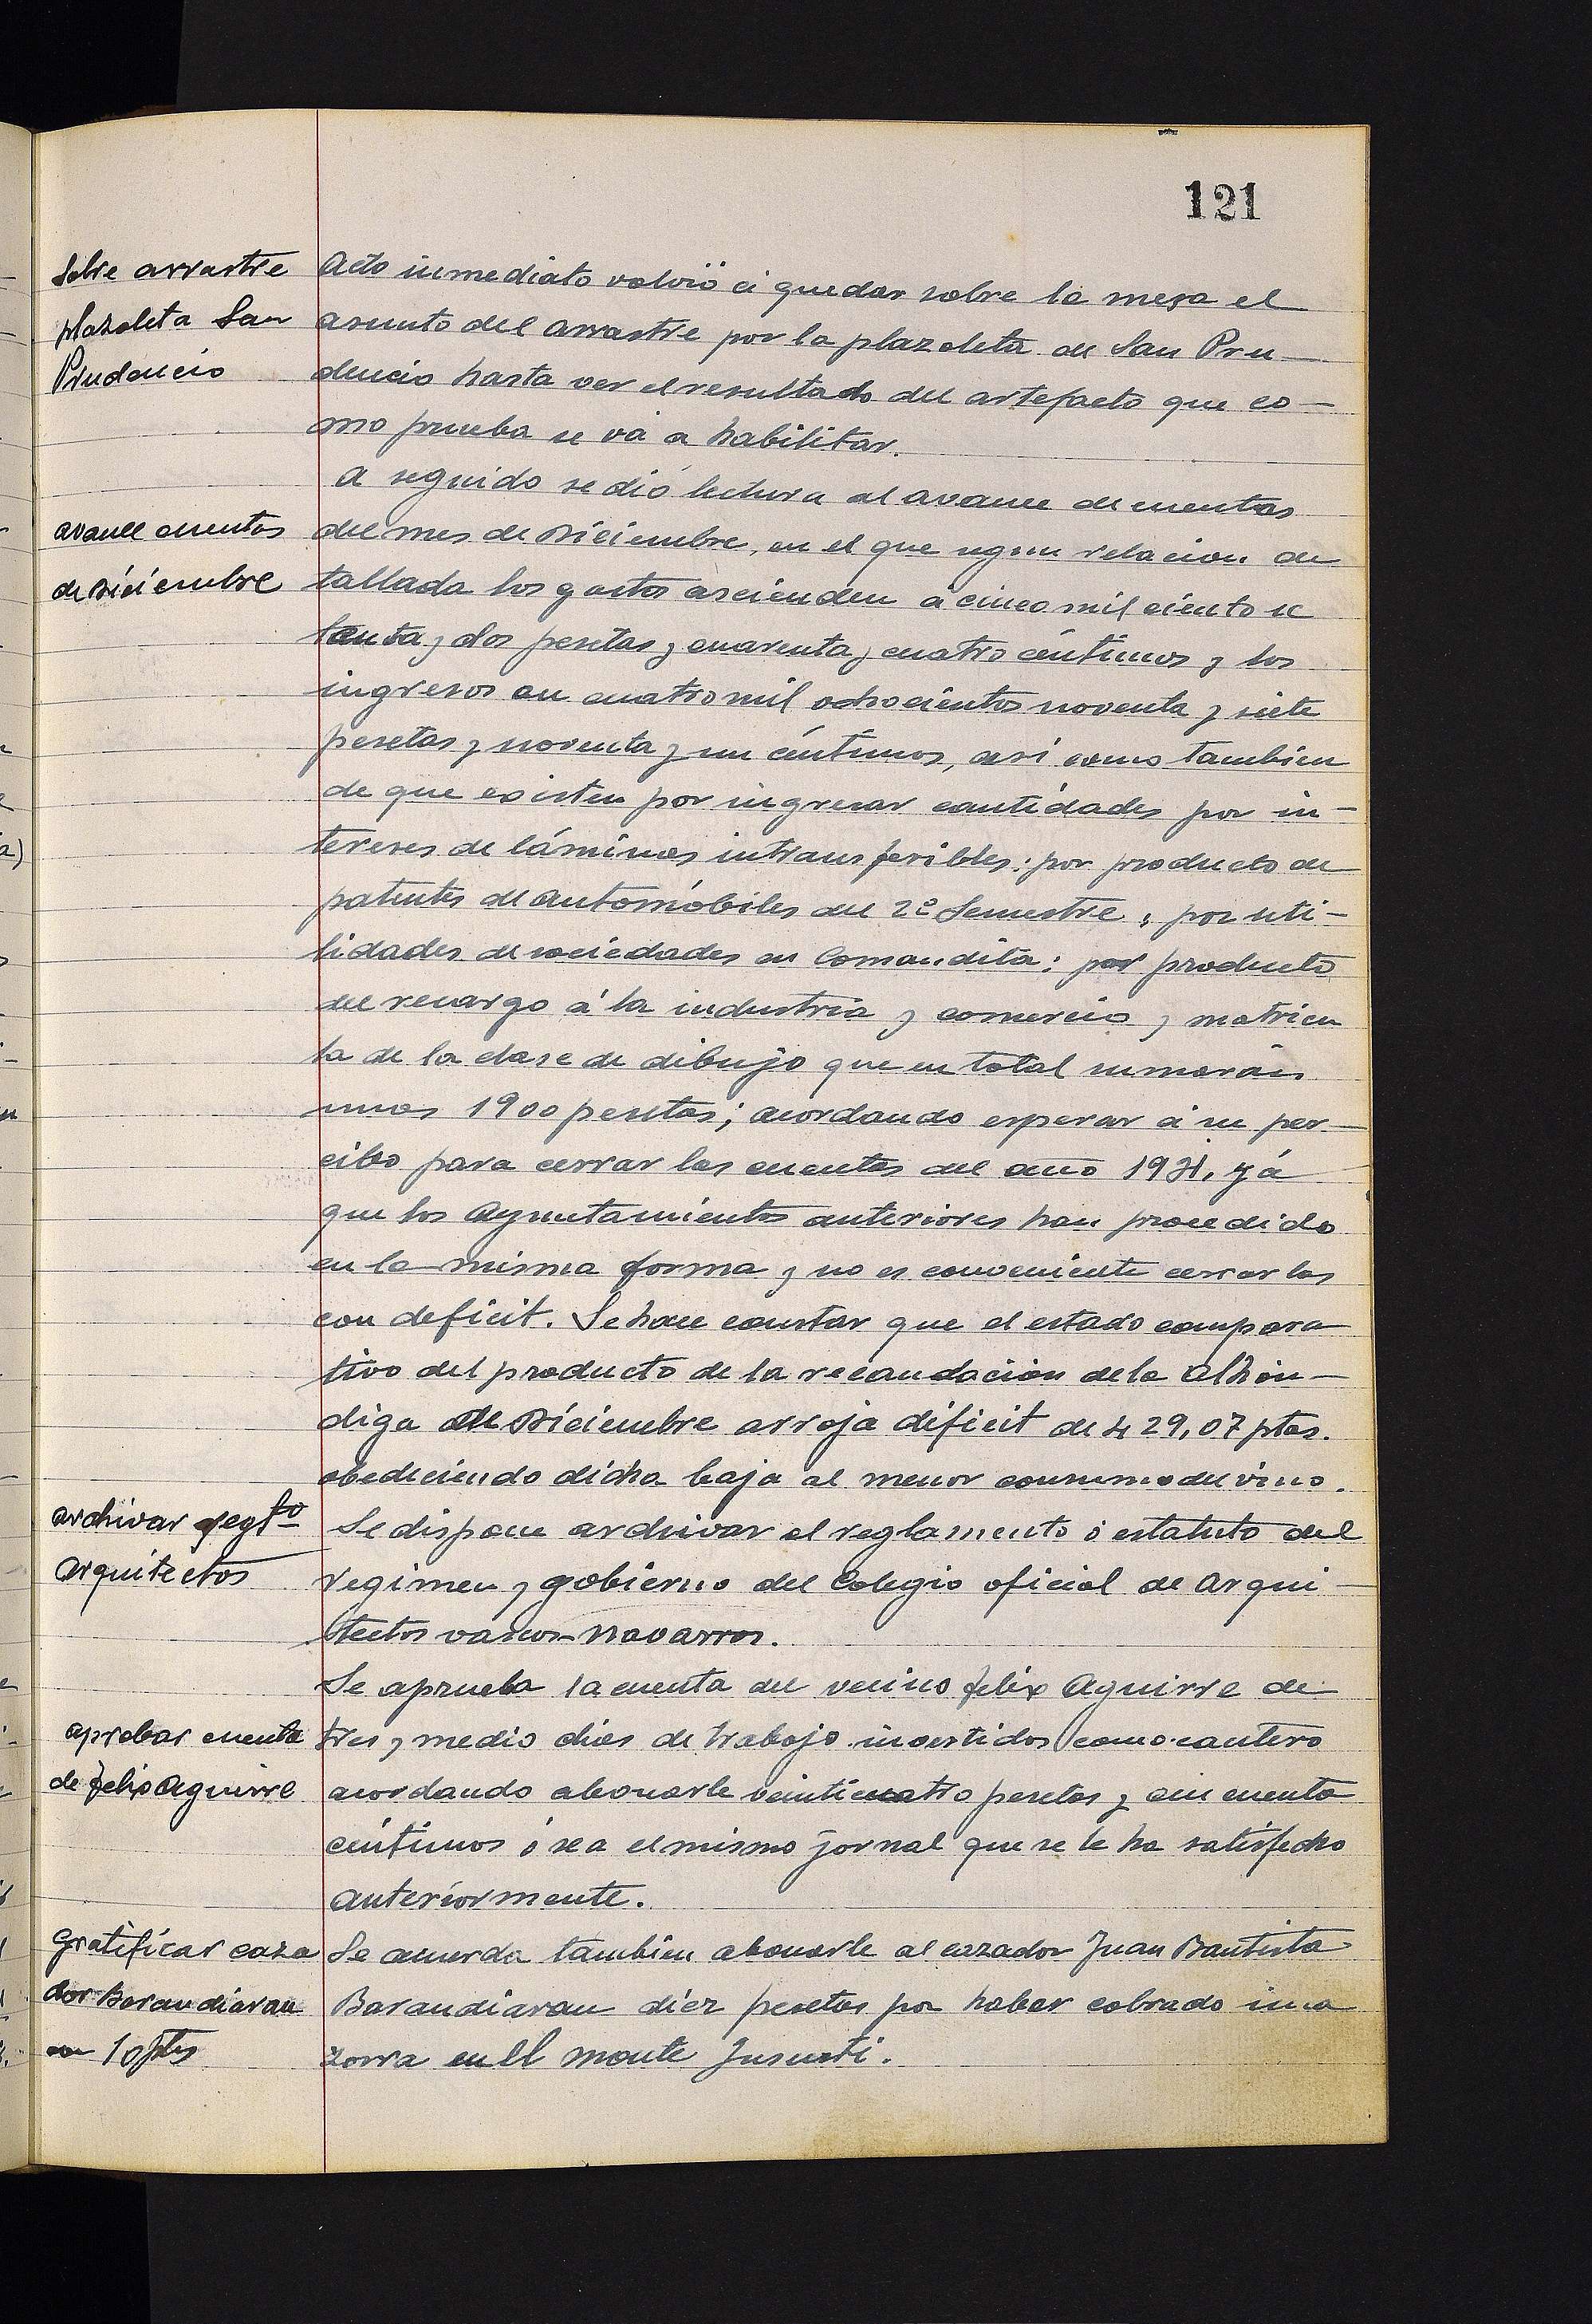 121
Sobre arrastre
plazoleta San
Prudencio
Acto inmediato volvió á quedar sobre la mesa el
asunto del arrastre por la plazoleta de San Pru-
dencio hasta ver el resultado del artefacto que co-
mo prueba se vá a habilitar.
avance cuentas
de Diciembre
A seguido se dió lectura al avance de cuentas
del mes de Diciembre, en el que segun relacion de
tallada los gastos ascienden á cinco mil ciento se
tenta y dos pesetas y cuarenta y cuatro céntimos y los
ingresos en cuatro mil ochocientos noventa y siete
pesetas y noventa y un céntimos, asi como tambien
de que existen por ingresar cantidades por in-
tereses de láminas intransferibles: por producto de
patentes de automóbiles del 2º Semestre, por uti-
lidades de sociedades en Comandita: por producto
del recargo á la industria y comercio y matricu
la de la clase de dibujo que en total sumarán
unas 1900 pesetas; acordando esperar á su per-
cibo para cerrar las cuentas del año 1931, yá
que los Ayuntamientos anteriores han procedido
en la misma forma y no es conveniente cerrarlas
con deficit. Se hace constar que el estado compara
tivo del producto de la recaudación de la Alhón-
diga de Diciembre arroja déficit de 429,07 ptas.
obedeciendo dicha baja al menor consumo del vino.
archivar regtº
Arquitectos
Se dispone archivar el reglamento ó estatuto del
regimen y gobierno del Colegio oficial de Arqui-
tectos vascos-navarros.
aprobar cuenta
de felix Aguirre
Se aprueba la cuenta del vecino felix Aguirre de
tres y medio dias de trabajo invertidos como cantero
acordando abonarle veinticuatro pesetas y cincuenta
céntimos ó sea el mismo jornal que se le ha satisfecho
anteriormente.
Gratificar caza
dor Barandiaran
con 10 ptas
Se acuerda tambien abonarle al cazador Juan Bautista
Barandiaran diez pesetas por haber cobrado una
zorra en el monte